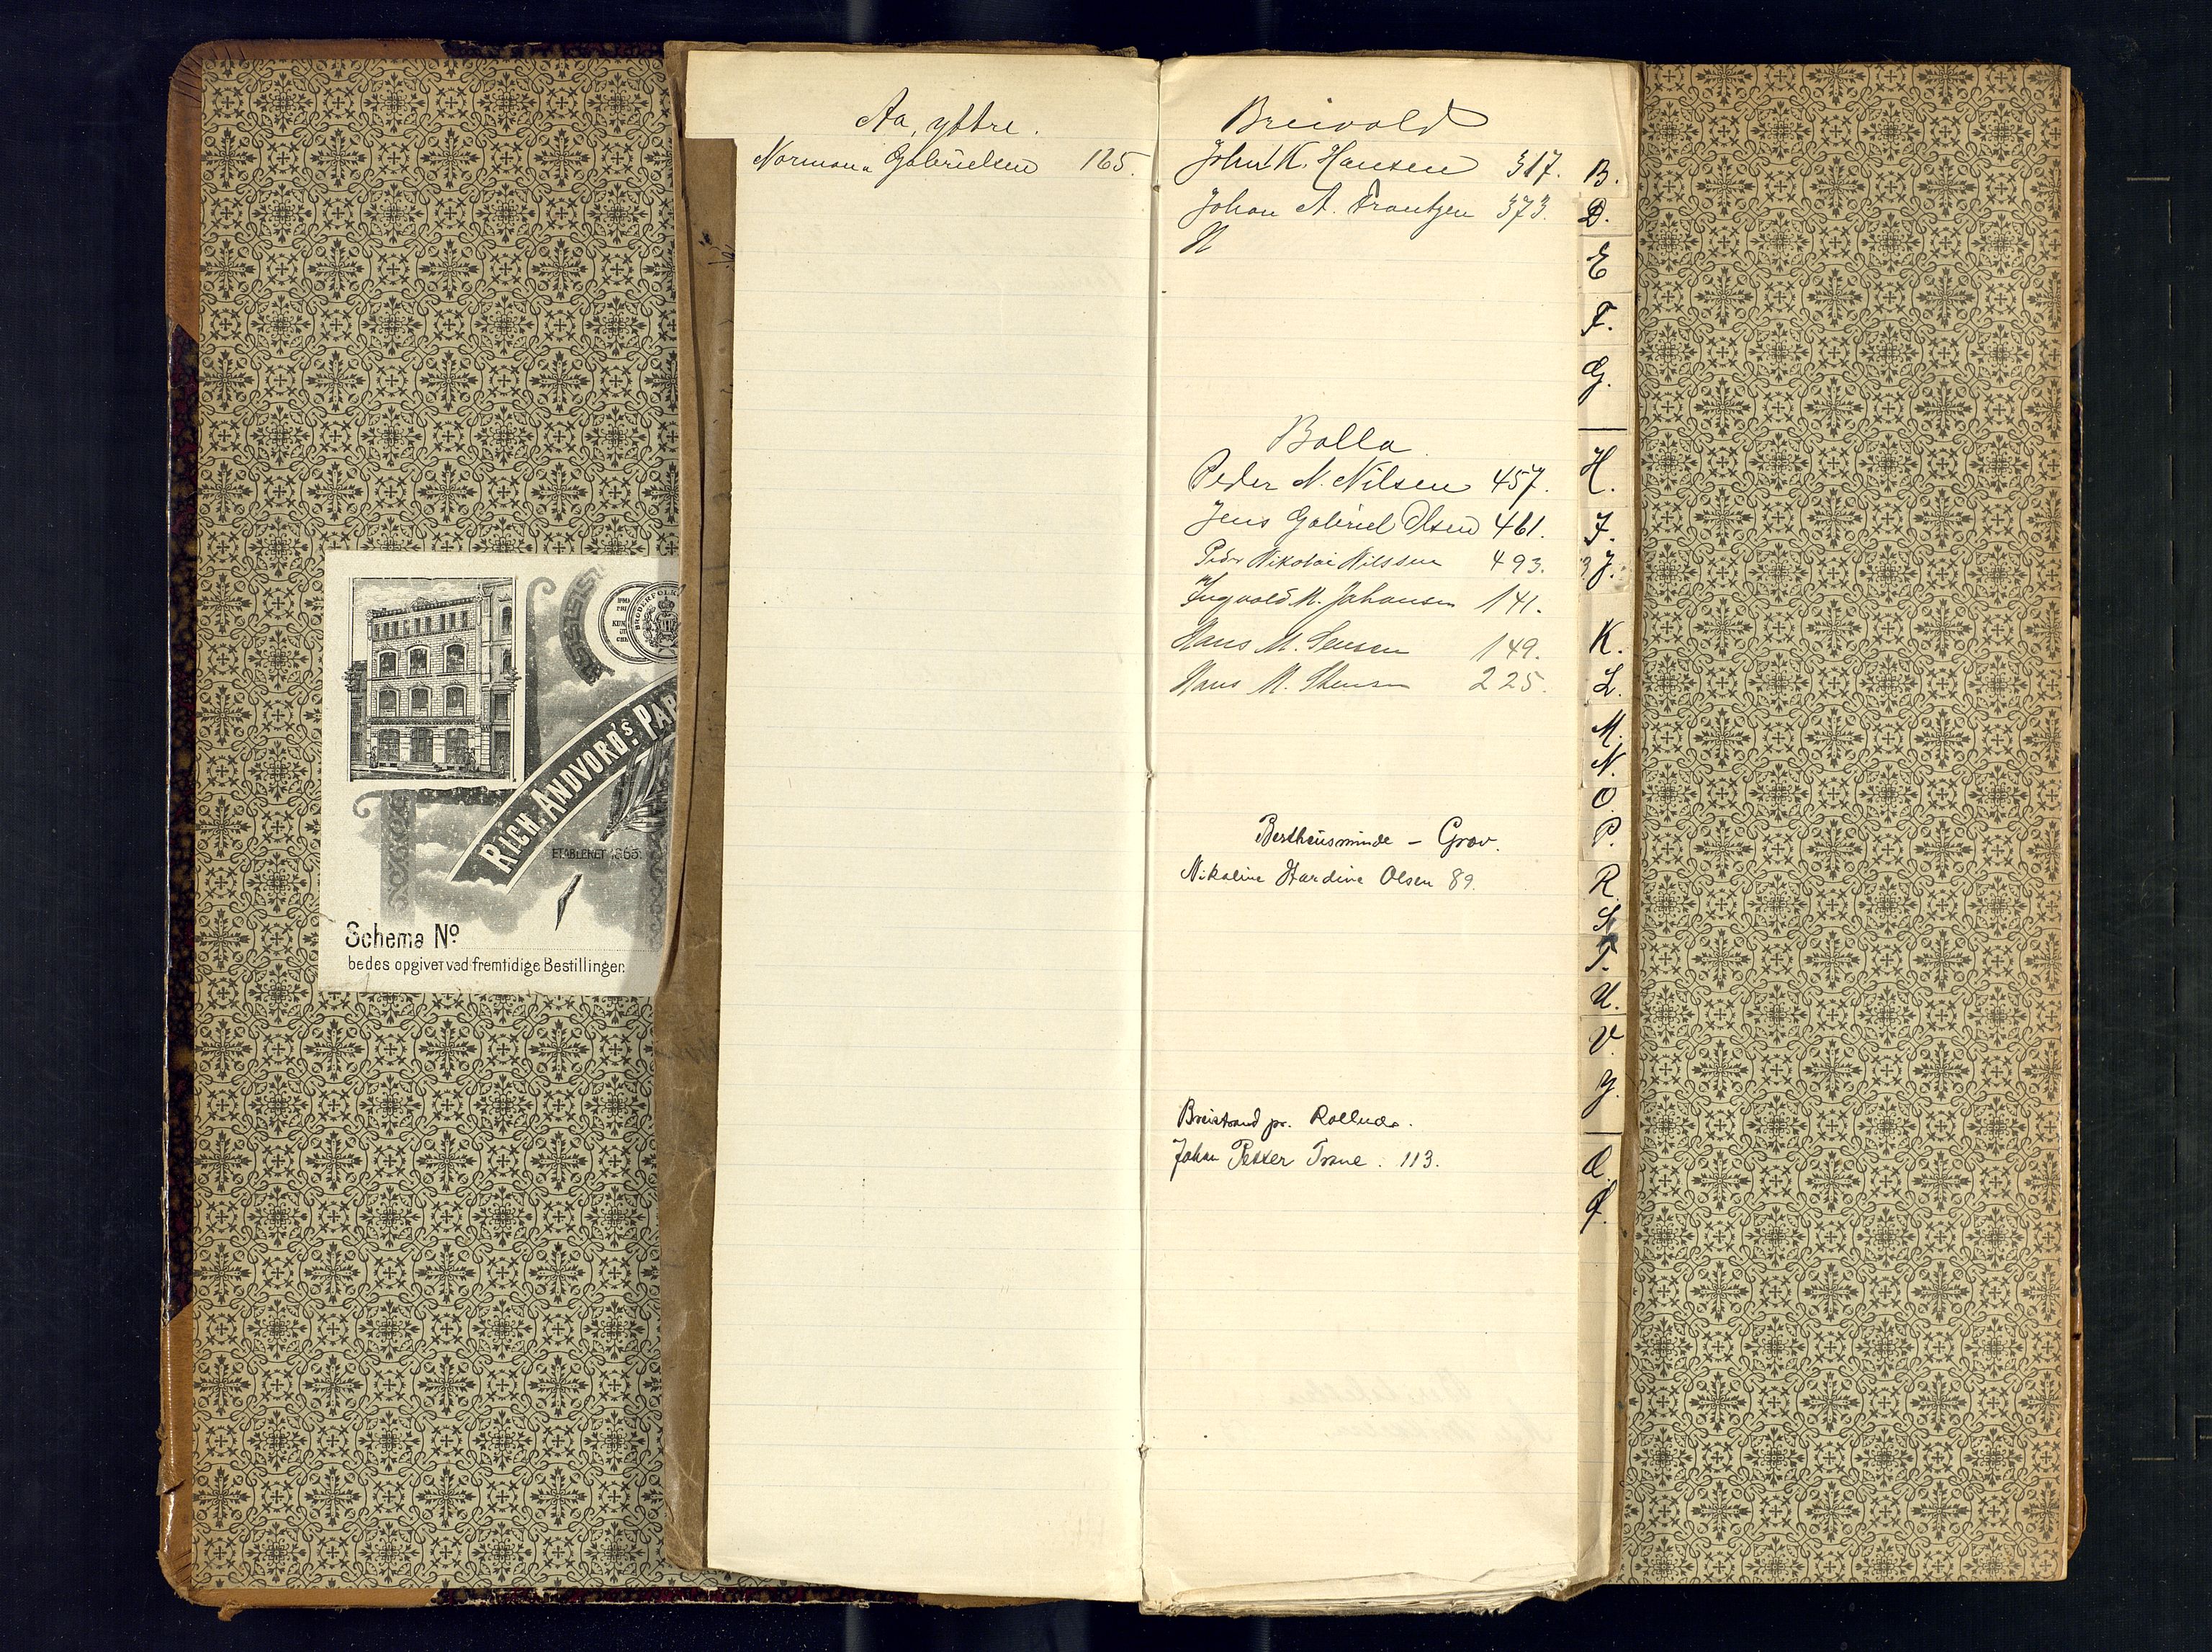 Aa, yttre.
Normann Gabrielsen 165.
Breivold
Johan K. Hansen 317.
Johan A. Frantzen 373.
N
Bolla
Peder N. Nilsen 457.
Jens Gabriel Olsen 461.
Peder Nikolai Nilssen 493.
Ingvald M. Johansen 141.
Hans M. Jensen 149.
Hans M. 225.
Bertheusminde – Grov.
Nikoline Hardine Olsen 89.
Breistrand pr. Rollnes.
Johan Petter Trane. 113.
B.
D.
E
F.
G.
H.
I.
J.
K.
L.
M.
N.
O.
P.
R.
S.
T.
U.
V.
Y.
RICH. ANDVORD'S. PAP
ETABLERET 1865.
BRODERFOLK
Schema No
bedes opgivet ved fremtidige Bestillinger.